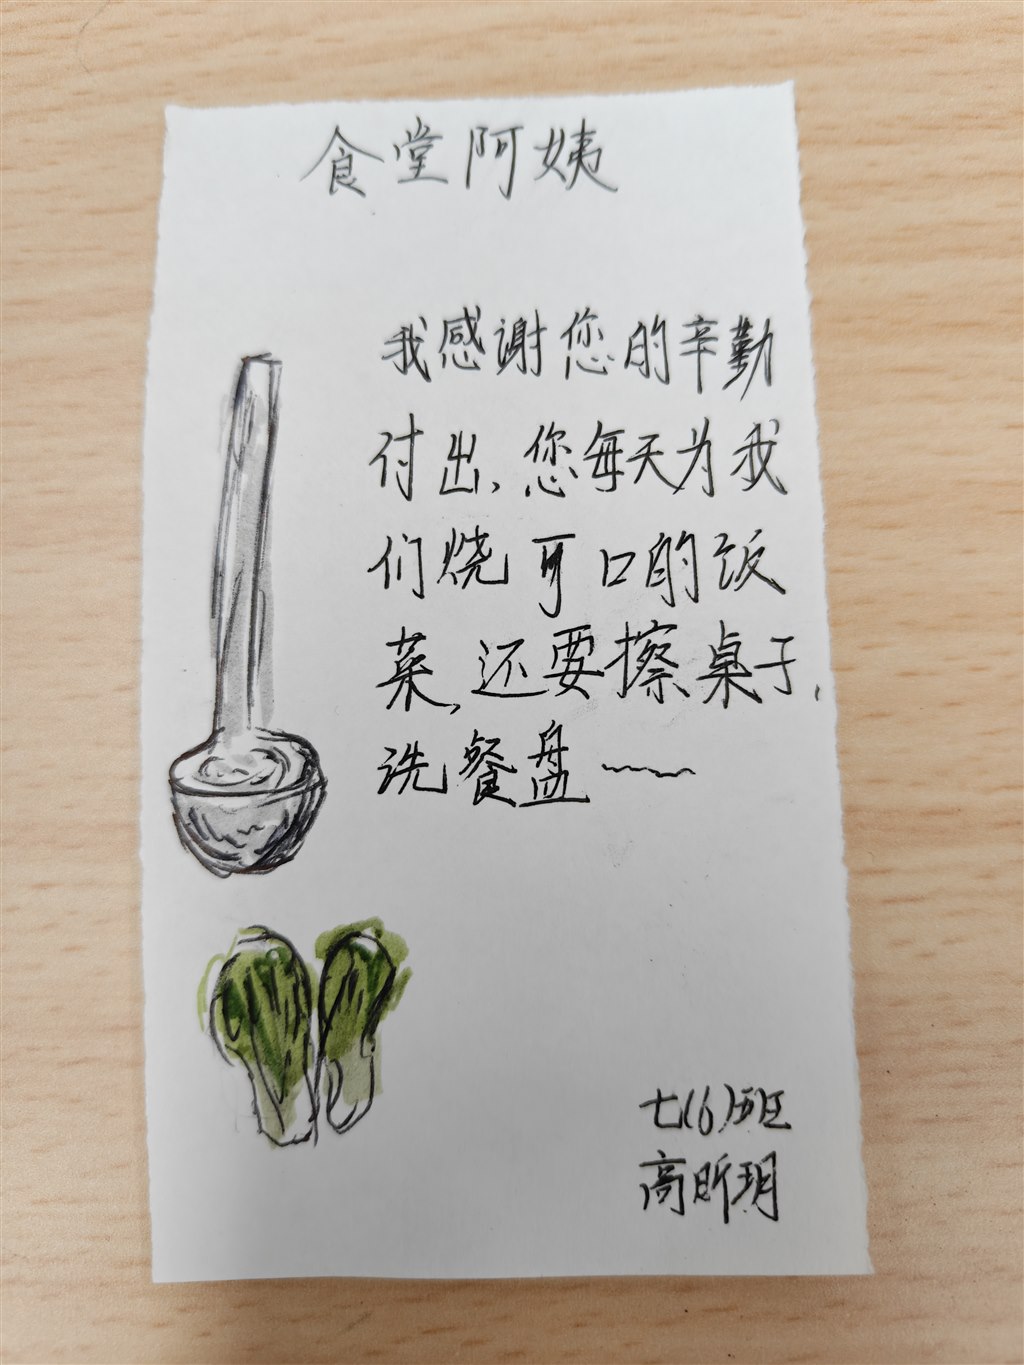 食堂阿姨
我感谢您的辛勤
付出,您每天为我
们烧可口的饭
菜,还要擦桌子,
洗餐盘~~~
七(6)班
高昕玥